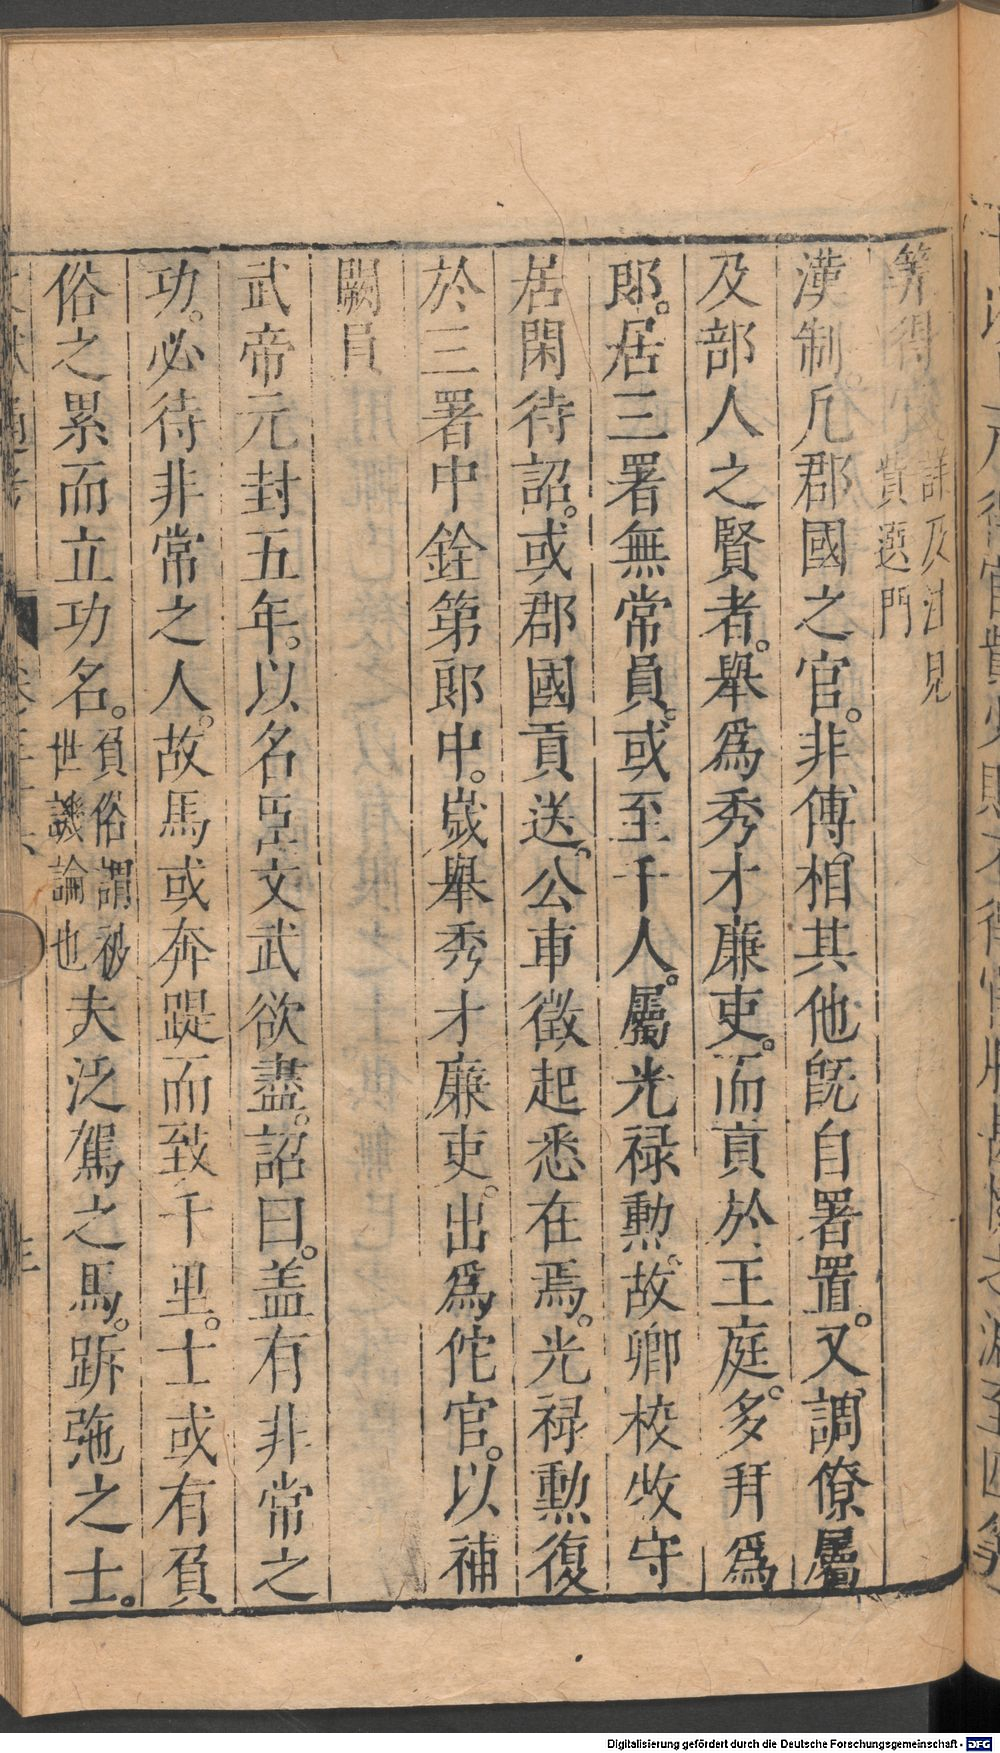 筭得宦詳及注見貲選門
漢制凡郡國之官。非傅相其他旣自署置。又調僚屬
及部人之賢者。舉爲秀才廉吏。而貢於王庭。多拜爲
郎。居三署無常員。或至千人。屬光禄勲。故卿校牧守
居閑待詔。或郡國貢送。公車徴起悉在焉。光禄勲復
於三署中銓第郎中。嵗舉秀才廉吏。出爲佗官。以補
闕員
武帝元封五年。以名臣文武欲盡。詔曰。盖有非常之
功。必待非常之人。故馬或奔踶而致千里。士或有負
俗之累而立功名。負俗謂被世譏論也夫泛駕之馬。跅㢮之士。
文獻通考
Digitalisierung gefördert durch die Deutsche Forschungsgemeinschaft - DFG